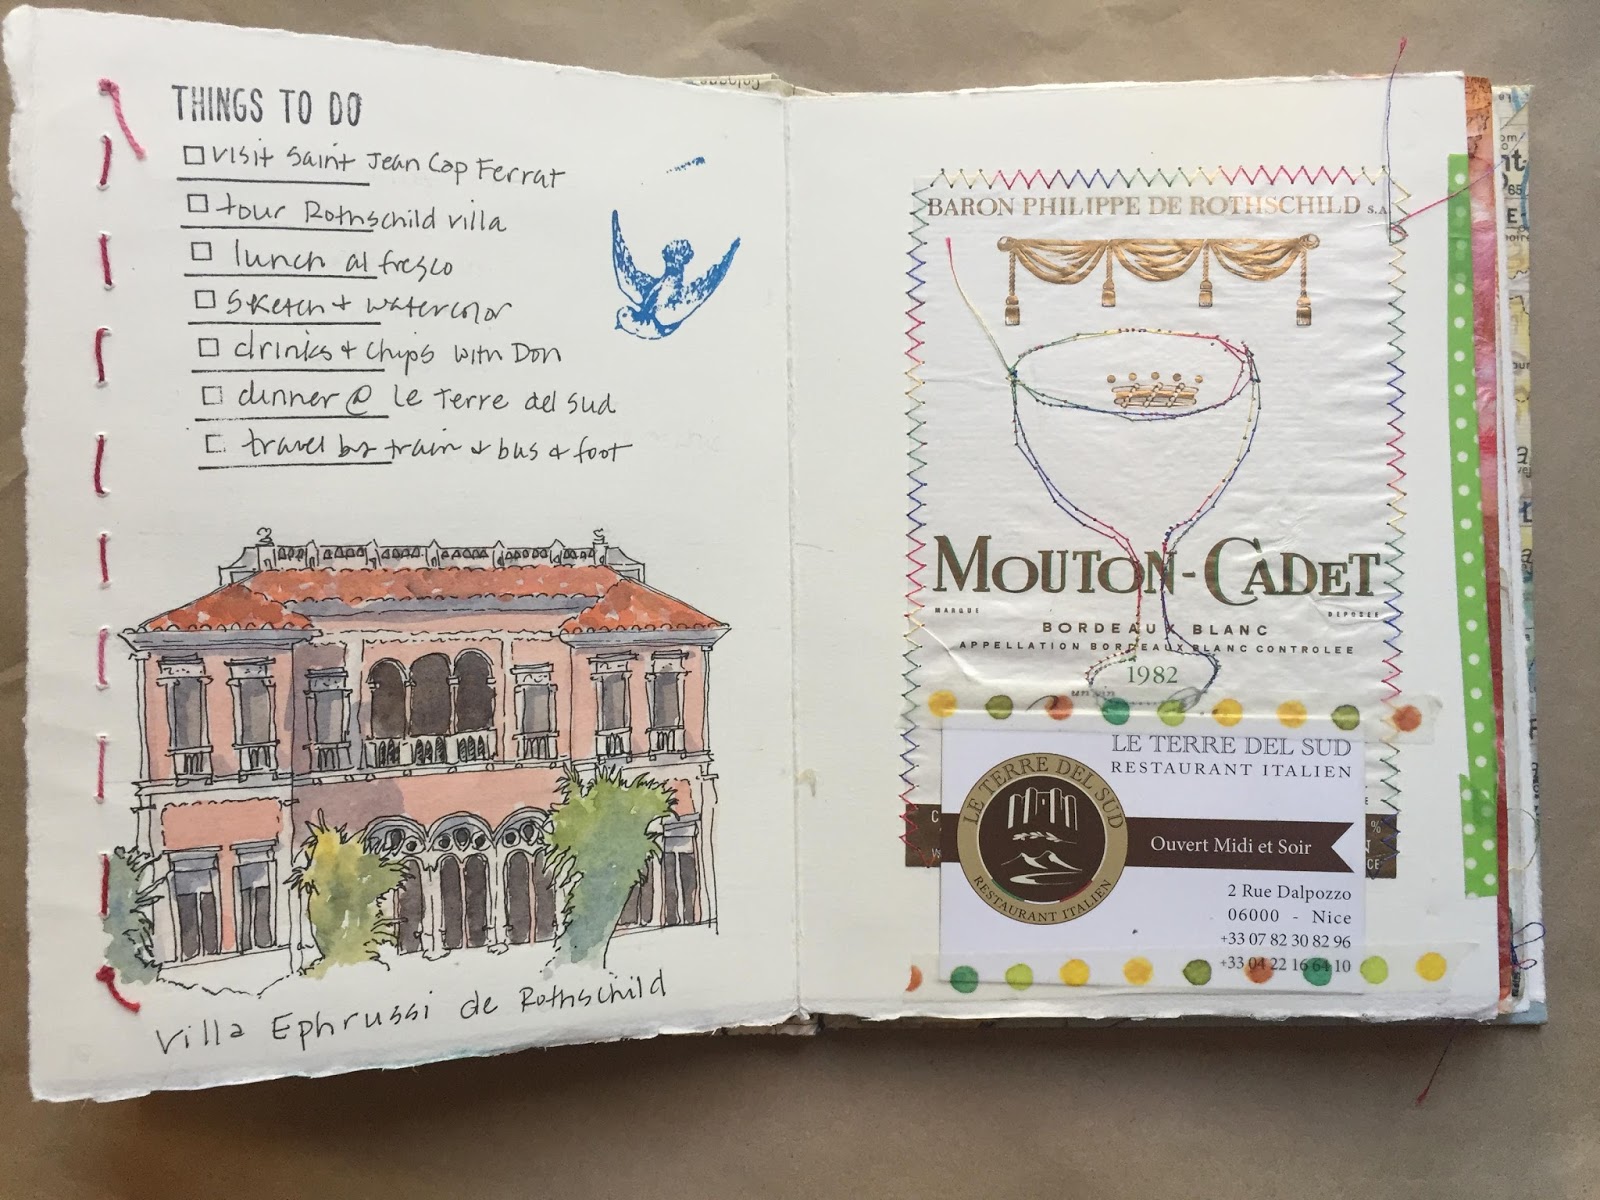 THINGS TO DO
visit Saint Jean Cap Ferrat
tour Rothschild villa
lunch al fresco
sketch + watercolor
drinks + chips with Don
dinner @ le terre del sud
travel by train & bus & foot
Villa Ephrussi de Rothschild
BARON PHILIPPE DE ROTHSCHILD S.A.
MOUTON-CADET
MARQUE DEPOSÉE
BORDEAUX BLANC
APPELLATION BORDEAUX BLANC CONTROLEE
1982
LE TERRE DEL SUD
RESTAURANT ITALIEN
LE TERRE DEL SUD
RESTAURANT ITALIEN
Ouvert Midi et Soir
2 Rue Dalpozzo
06000 - Nice
+33 07 82 30 82 96
+33 04 22 16 64 10